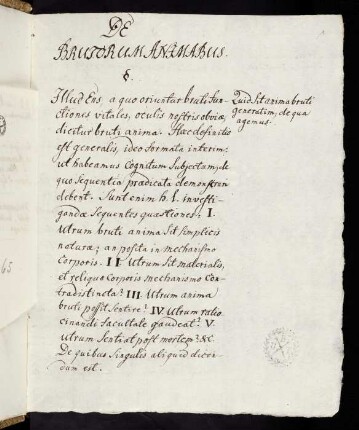 DE
BRUTORUM ANIMABUS.
§.
Illud Ens, a quo oriuntur bruti fun-
ctiones vitales, oculis nostris obviæ,
dicitur bruti anima. Hæc definitio
est generalis, ideo formata interim:
ut habeamus cognitum Subjectum, de
quo sequentia prædicata demonstran
debent. Sunt enim h. l. investi-
gandæ sequentes quæstiones: I.
Utrum bruti anima sit simplicis
naturæ; an posita in mechanismo
corporis. II Utrum sit materialis,
et reliquo corporis mechanismo con-
tradistincta? III Utrum anima
bruti possit sentire? IV Utrum ratio
cinandi facultate gaudeat? V
Utrum sentiat post mortem? &c.
De quibus singulis aliquid dicen-
dum est.
Quid sit anima bruti
generatim, de qua
agemus.
65